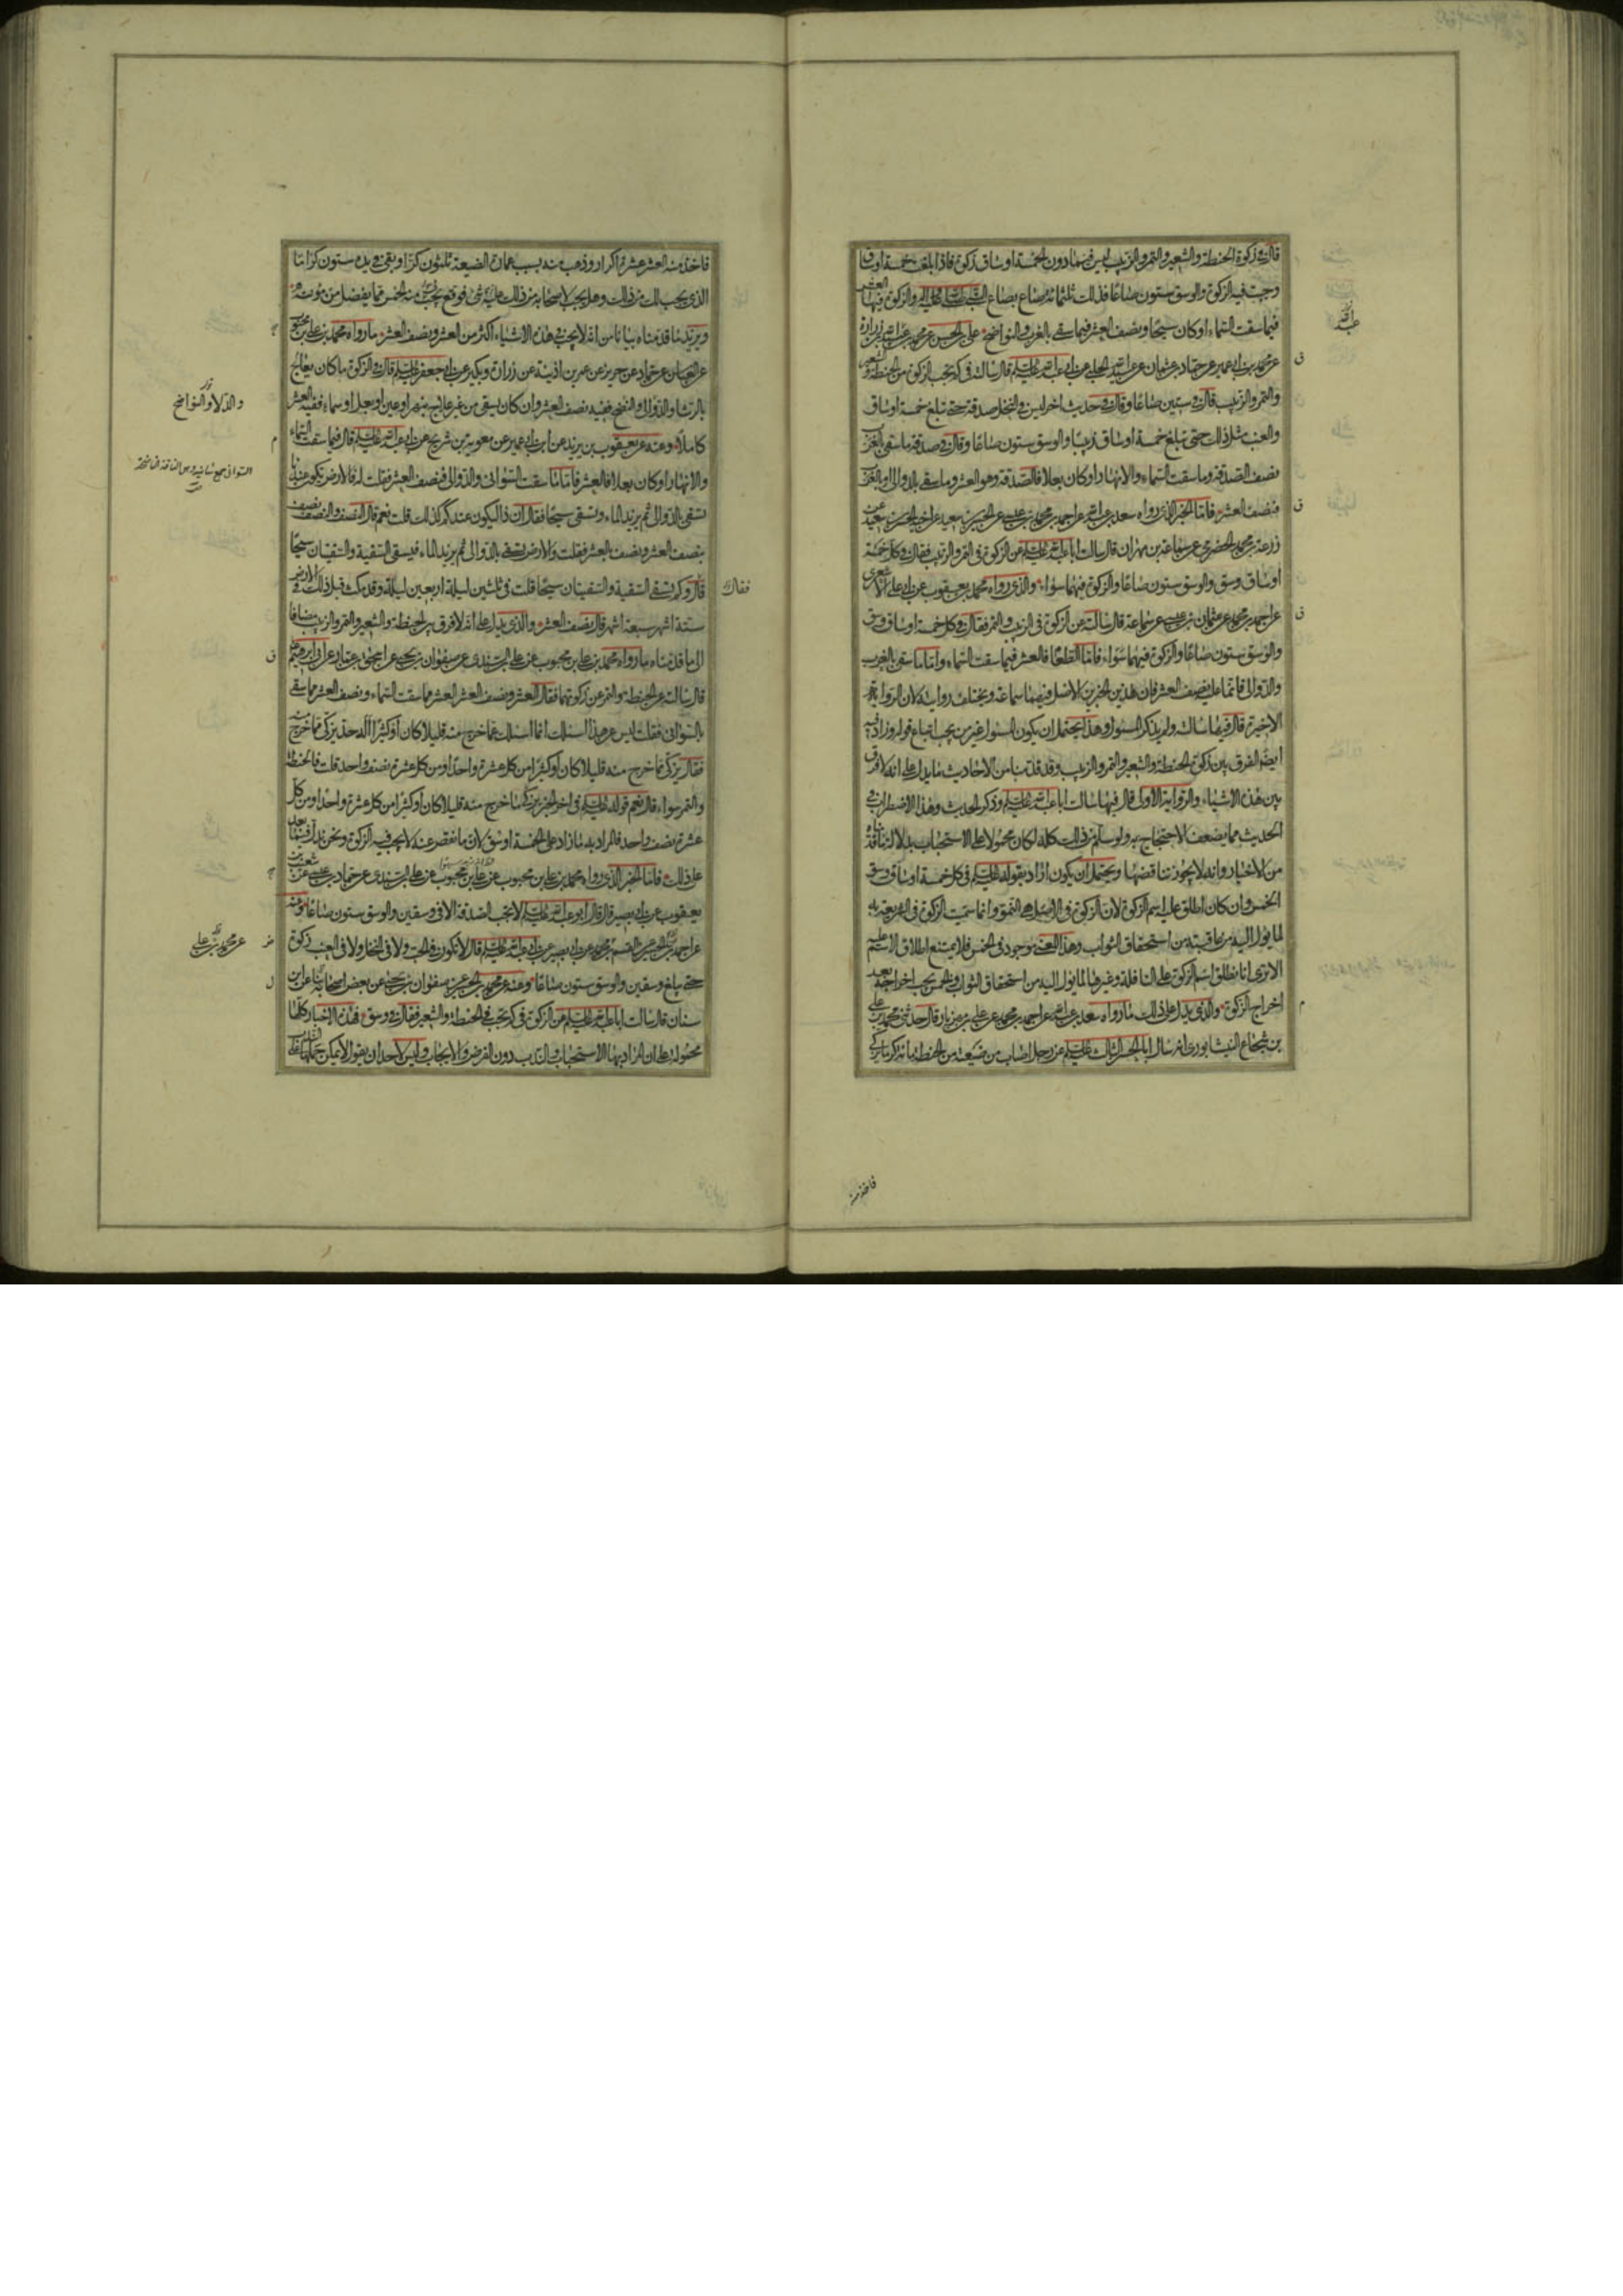 قال في زكوة الحنطة والشعير والتمر والزبيب ليس فيما دون الخمسة اوساق زكوة فاذا بلغت خمسة اوساق
وجبت فيه الزكوة والوسق ستون صاعا فذلك ثلثمائة صاع بصاع النبي صلى الله عليه واله والزكوة فيها العشر
فيما سقت السماء او كان سيحا ونصف العشر فيما سقي بالغرب والنواضح علي بن الحسن عن محمد بن عبيد الله بن زرارة
عن محمد بن ابي عمير عن حماد بن عثمان عن عبيد الله الحلبي عن ابي عبد الله عليه السلم قال سالته في كم تجب الزكوة من الحنطة والشعير
والتمر والزبيب قال في ستين صاعا وقال في حديث اخر ليس في النخل صدقة حتى تبلغ خمسة اوساق
والعنب مثل ذلك حتى تبلغ خمسة اوساق زبيبا والوسق ستون صاعا وقال في صدقة ما سقي بالغرب
نصف الصدقة وما سقت السماء والانهار او كان بعلا فالصدقة وهو العشر وما سقي بالدوالي او بالغرب
فنصف العشر فاما الخبر الذي رواه سعد بن عبد الله عن احمد بن محمد بن عيسى عن الحسين بن سعيد عن اخيه الحسن بن سعيد عن
زرعة بن محمد الحضرمي عن سماعة بن مهران قال سالت ابا عبد الله عليه السلم عن الزكوة في التمر والزبيب فقال في كل خمسة
اوساق وسق والوسق ستون صاعا والزكوة فيهما سواء والذي رواه محمد بن يعقوب عن ابي علي الاشعري
عن احمد بن محمد عن عثمان بن عيسى عن سماعة قال سالته عن الزكوة في الزبيب والتمر فقال في كل خمسة اوساق وسق
والوسق ستون صاعا والزكوة فيهما سواء فاما الطعام فالعشر فيما سقت السماء واما ما سقي بالغرب
والدوالي فانما عليه نصف العشر فان هذين الخبرين الاصل فيهما سماعة ويختلف روايته لان الرواية
الاخيرة قال فيها سالته ولم يذكر المسئول وهذا يحتمل ان يكون المسئول غير من يجب اتباع قوله وزاد فيه
ايضا الفرق بين زكوة الحنطة والشعير والتمر والزبيب وقد قدمنا من الاحاديث ما يدل على انه لا فرق
بين هذه الاشياء والرواية الاولى قال فيها سالت ابا عبد الله عليه السلم وذكر الحديث وهذا الاضطراب في
الحديث مما يضعف الاحتجاج به ولو سلم من ذلك كله لكان محمولا على الاستحباب بدلالة ما قدمناه
من الاخبار وانه لا يجوز تناقضها ويحتمل ان يكون اراد بقوله عليه السلم في كل خمسة اوساق وسق
الخمس وان كان اطلق عليه اسم الزكوة لان الزكوة في الاصل هي النمو وانما سميت الزكوة في الشريعة بها
لما يؤل اليه من عاقبته من استحقاق الثواب وهذا المعنى موجود في الخمس فلا يمتنع اطلاق الاسم عليه
الا ترى انا نطلق اسم الزكوة على النافلة وغيرها لما يؤل اليه من استحقاق الثواب والخمس يجب اخراجه بعد
اخراج الزكوة والذي يدل على ذلك ما رواه سعد بن عبد الله عن احمد بن محمد عن علي بن مهزيار قال حدثني محمد بن علي
بن شجاع النيشابوري انه سال ابا الحسن الثالث عليه السلم عن رجل اصاب من ضيعته من الحنطة مائة كر ما يزكي
عبد الله
فاخذ منه
فاخذ منه العشر عشرة اكرار وذهب منه بسبب عمارة الضيعة ثلثون كرا وبقي في يده ستون كرا ما
الذي يجب لك من ذلك وهل يجب لاصحابه من ذلك عليه شئ فوقع لي منه الخمس مما يفضل من مؤنته
ويزيد ما قدمناه بيانا من انه لا يجب في هذه الاشياء اكثر من العشر ونصف العشر ما رواه محمد بن علي بن محبوب
عن العباس عن حماد عن حريز عن عمر بن اذينة عن زرارة وبكير عن ابي جعفر عليه السلم قال في الزكوة ما كان يعالج
بالرشا والدوالي والنضح ففيه نصف العشر وان كان يسقى من غير علاج بنهر او عين او بعل او سماء ففيه العشر
كاملا وعنه عن يعقوب بن يزيد عن ابن ابي عمير عن معوية بن شريح عن ابي عبد الله عليه السلم قال فيما سقت السماء
والانهار او كان بعلا فالعشر فاما ما سقت السواني والدوالي فنصف العشر فقلت له فالارض تكون عندنا
تسقى بالدوالي ثم يزيد الماء وتسقى سيحا فقال ان ذا ليكون عندكم كذلك قلت نعم قال النصف والنصف نصف
بنصف العشر ونصف بالعشر فقلت والارض تسقى بالدوالي ثم يزيد الماء فيسقى السقية والسقيتان سيحا
قال وكم تسقى السقية والسقيتان سيحا قلت في ثلثين ليلة اربعين ليلة وقد مكث قبل ذلك في الارض
ستة اشهر سبعة اشهر قال نصف العشر والذي يدل على انه لا فرق بين الحنطة والشعير والتمر والزبيب مضافا
الى ما قدمناه ما رواه محمد بن علي بن محبوب عن علي بن السندي عن صفوان بن يحيى عن اسحق بن عمار عن ابي ابراهيم عليه
قال سالته عن الحنطة والتمر عن زكوتهما فقال العشر ونصف العشر العشر مما سقت السماء ونصف العشر مما سقي
بالسواني فقلت ليس عن هذا اسئلك انما اسئلك عما خرج منه قليلا كان او كثيرا اله حد يزكي مما خرج منه
فقال يزكي مما خرج منه قليلا كان او كثيرا من كل عشرة واحدا ومن كل عشرة نصف واحد قلت فالحنطة
والتمر سواء قال نعم قوله عليه السلم في اخر الخبر يزكى ما خرج منه قليلا كان او كثيرا من كل عشرة واحدا ومن كل
عشرة نصف واحد فالمراد به ما زاد على الخمسة اوسق لان ما نقص عنه لا يجب فيه الزكوة ونحن ندل فيما بعد
على ذلك فاما الخبر الذي رواه محمد بن علي بن محبوب عن علي بن السندي عن حماد بن عيسى عن شعيب بن
يعقوب عن ابي بصير قال قال ابو عبد الله عليه السلم لا تجب الصدقة الا في وسقين والوسق ستون صاعا وعنه
عن احمد بن الحسين عن القسم بن محمد عن ابي بصير عن ابي عبد الله عليه السلم قال لا تكون في الحب ولا في النخل ولا في العنب زكوة
حتى يبلغ وسقين والوسق ستون صاعا وعنه عن محمد بن الحسين عن صفوان بن يحيى عن بعض اصحابنا عن ابن
سنان قال سالت ابا عبد الله عليه السلم عن الزكوة في كم تجب في الحنطة والشعير فقال في وسق فهذه الاخبار كلها
محمولة على ان المراد بها الاستحباب والندب دون الفرض والايجاب وليس لاحد ان يقول لا يمكن حملها على
والدلاء والنواضح
السواني جمع سانية وهي الناقة الناضحة
فقال
عن محمد بن علي